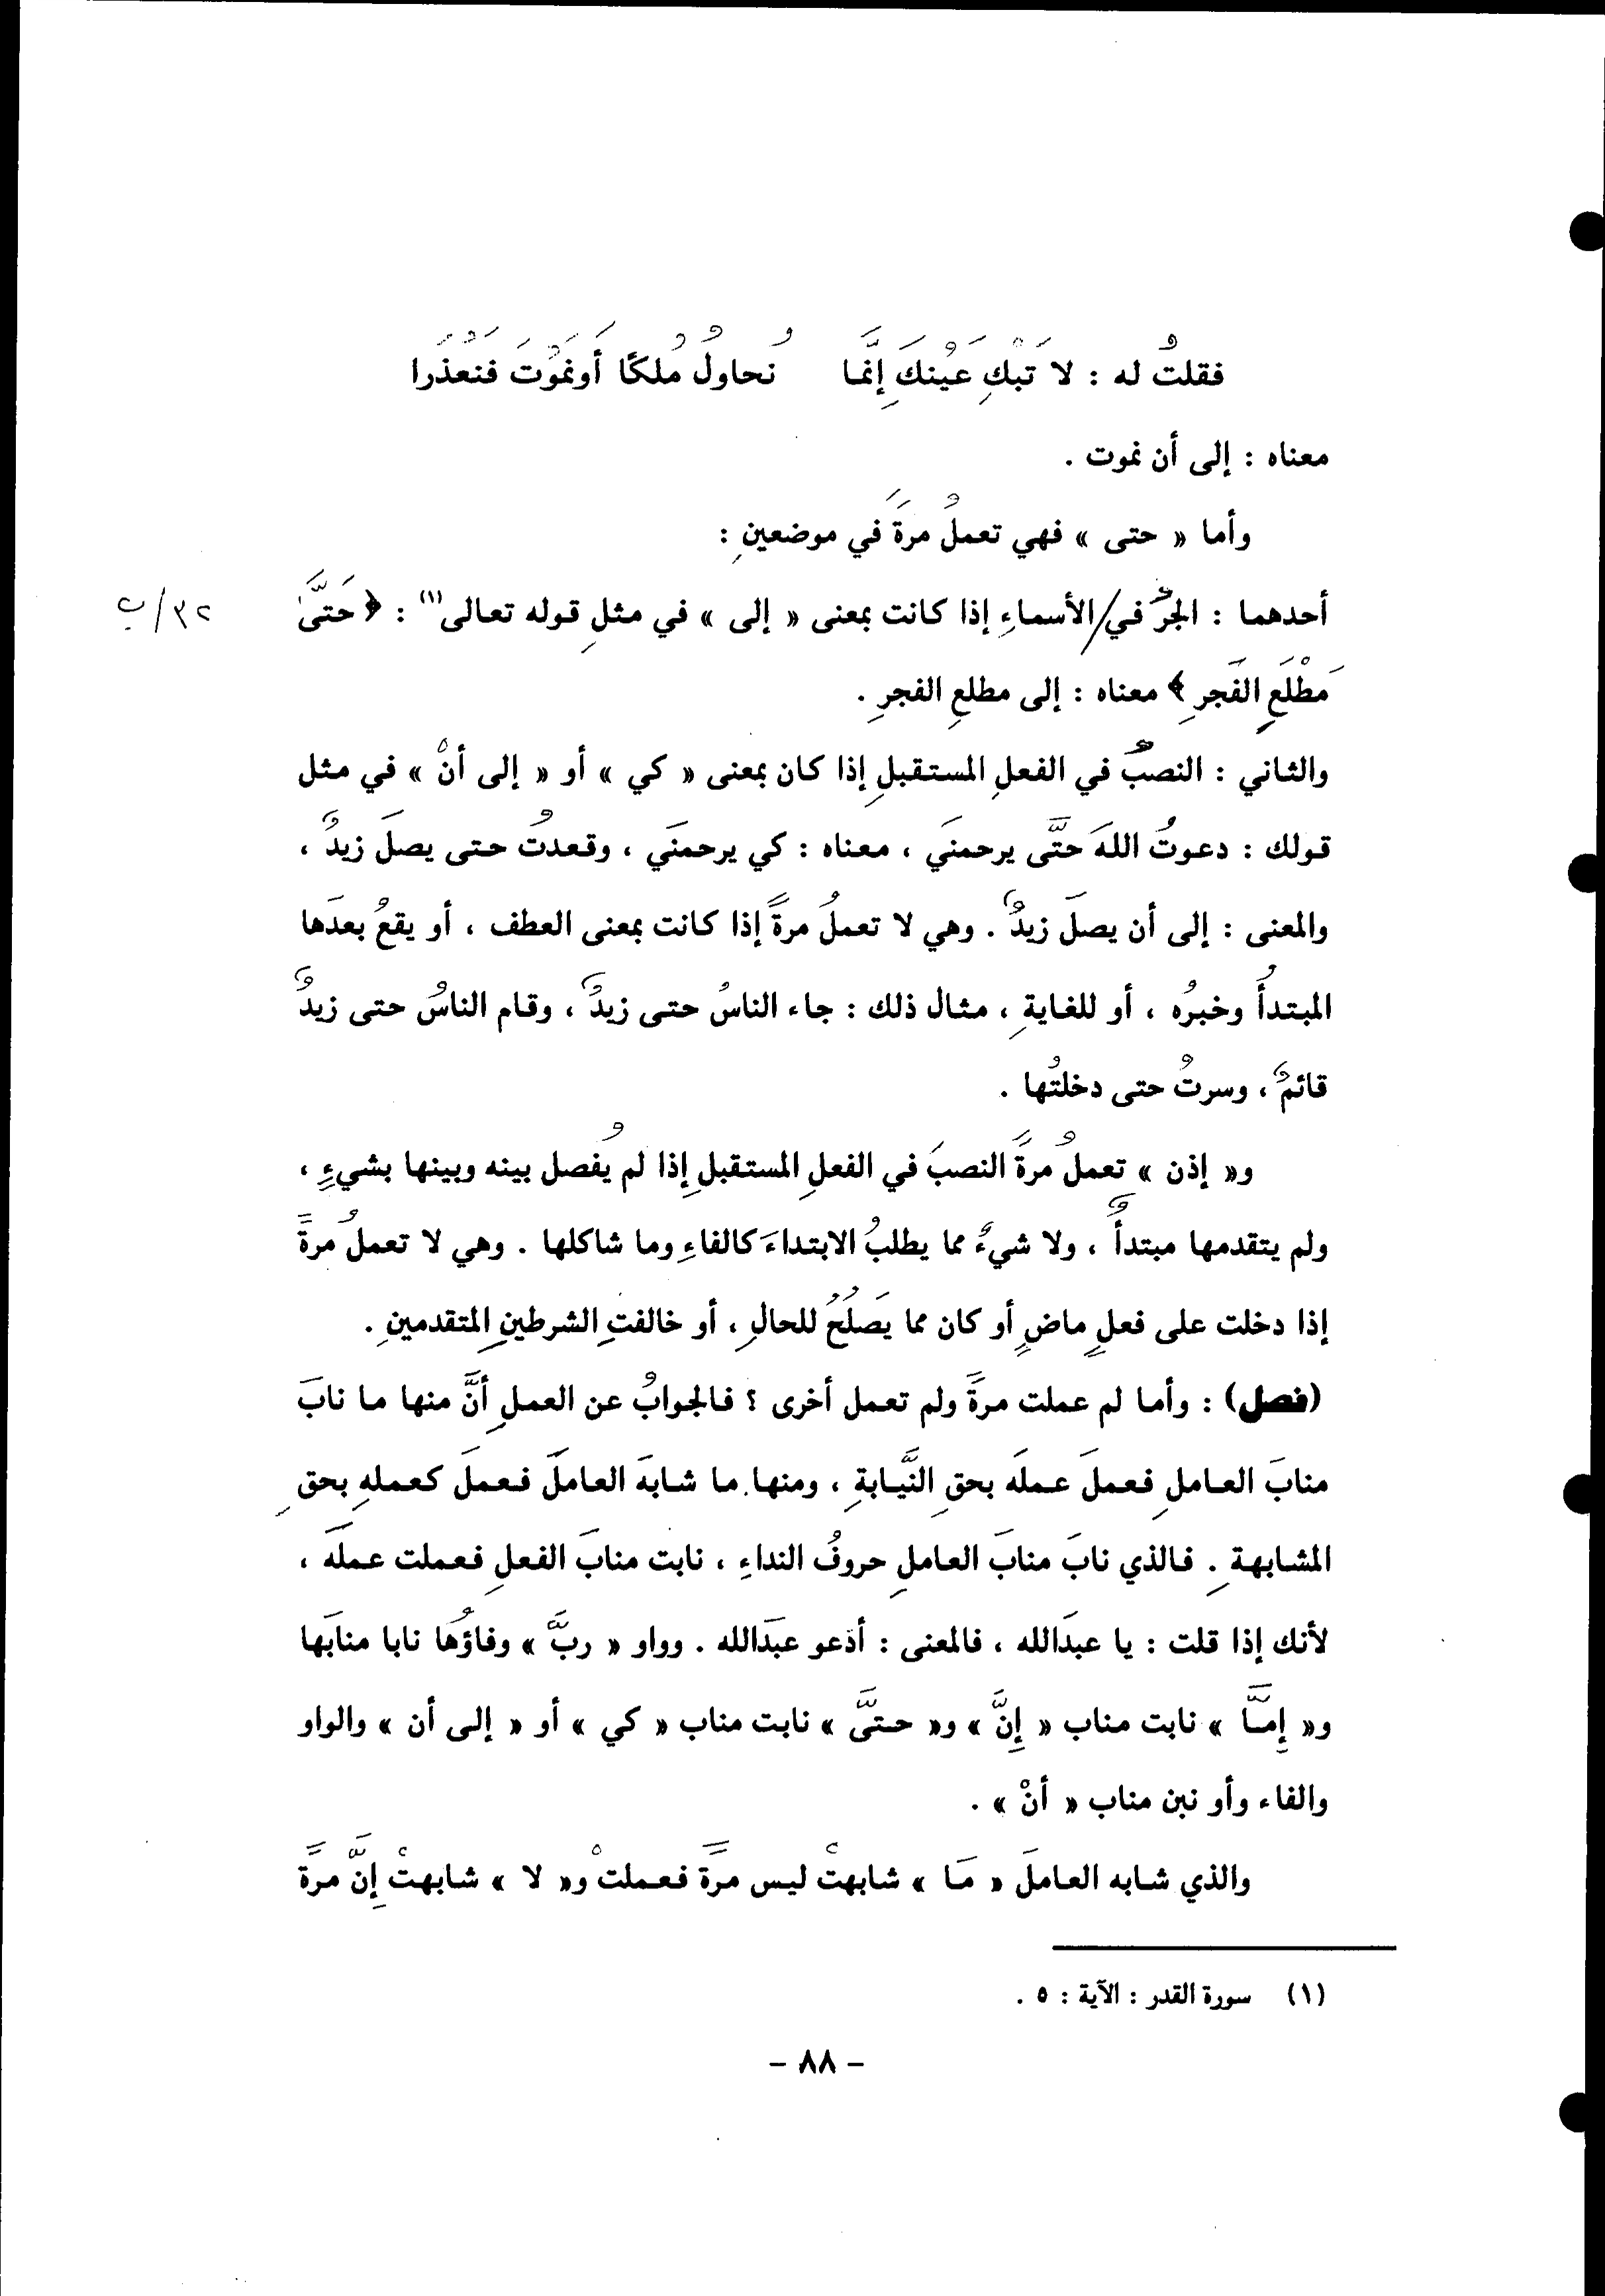 فقلتُ له : لا تَبْكِ عَيْنُكَ إِنَّمَا نُحاولُ مُلكًا أَونَمُوْتَ فنعذَرا
معناه : إلى أن نموت .
وأما « حتى » فهي تعملُ مرةَ في موضعينِ :
أحدهما : الجرُّ في/الأسماءِ إذا كانت بمعنى « إلى » في مثلِ قوله تعالى(١) : ﴿ حَتَّىٰ
٣٢/ب
مَطْلَعِ الفَجرِ ﴾ معناه : إلى مطلعِ الفجرِ .
والثاني : النصبُ في الفعلِ المستقبلِ إذا كان بمعنى « كي » أو « إلى أنْ » في مثل
قولك : دعوتُ اللهَ حتَّى يرحمنَي ، معناه : كي يرحمنَي ، وقعدتُ حتى يصلَ زيدٌ ،
والمعنى : إلى أن يصلَ زيدٌ . وهي لا تعملُ مرةً إذا كانت بمعنى العطف ، أو يقعُ بعدَها
المبتدأُ وخبرُه ، أو للغايةِ ، مثال ذلك : جاء الناسُ حتى زيدٌ ، وقام الناسُ حتى زيدٌ
قائمٌ ، وسرتُ حتى دخلتُها .
و« إذن » تعملُ مرةً النصبَ في الفعلِ المستقبلِ إذا لم يُفصل بينه وبينها بشيءٍ ،
ولم يتقدمها مبتدأٌ ، ولا شيءٌ مما يطلبُ الابتداءَ كالفاءِ وما شاكلها . وهي لا تعملُ مرةً
إذا دخلت على فعلٍ ماضٍ أو كان مما يَصلُحُ للحالِ ، أو خالفتِ الشرطينِ المتقدمينِ .
(فصل) : وأما لم عملت مرةً ولم تعمل أخرى ؟ فالجوابُ عن العملِ أنَّ منها ما نابَ
منابَ العاملِ فعملَ عملَه بحقِ النِّيابةِ ، ومنها ما شابهَ العاملَ فعملَ كعملهِ بحقِ
المشابهةِ . فالذي نابَ منابَ العاملِ حروفُ النداءِ ، نابت منابَ الفعلِ فعملت عملَه ،
لأنك إذا قلت : يا عبدَالله ، فالمعنى : أدعو عبدَالله . وواو « ربَّ » وفاؤُها نابا منابَها
و« إِمَّا » نابت مناب « إِنَّ » و« حتىَّ » نابت مناب « كي » أو « إلى أن » والواو
والفاء وأو نبن مناب « أنْ » .
والذي شابه العاملَ « مَا » شابهتْ ليس مرةً فعملتْ و« لا » شابهتْ إِنَّ مرةً
(١) سورة القدر : الآية : ٥ .
- ٨٨ -